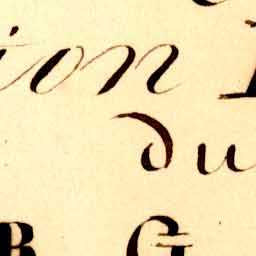 ion
du
B G